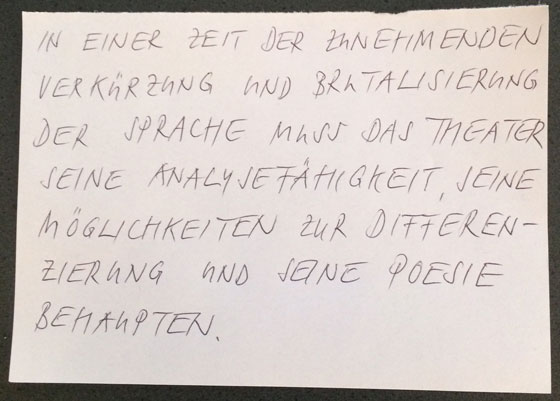 IN EINER ZEIT DER ZUNEHMENDEN
VERKÜRZUNG UND BRUTALISIERUNG
DER SPRACHE MUSS DAS THEATER
SEINE ANALYSEFÄHIGKEIT, SEINE
MÖGLICHKEITEN ZUR DIFFEREN-
ZIERUNG UND SEINE POESIE
BEHAUPTEN.